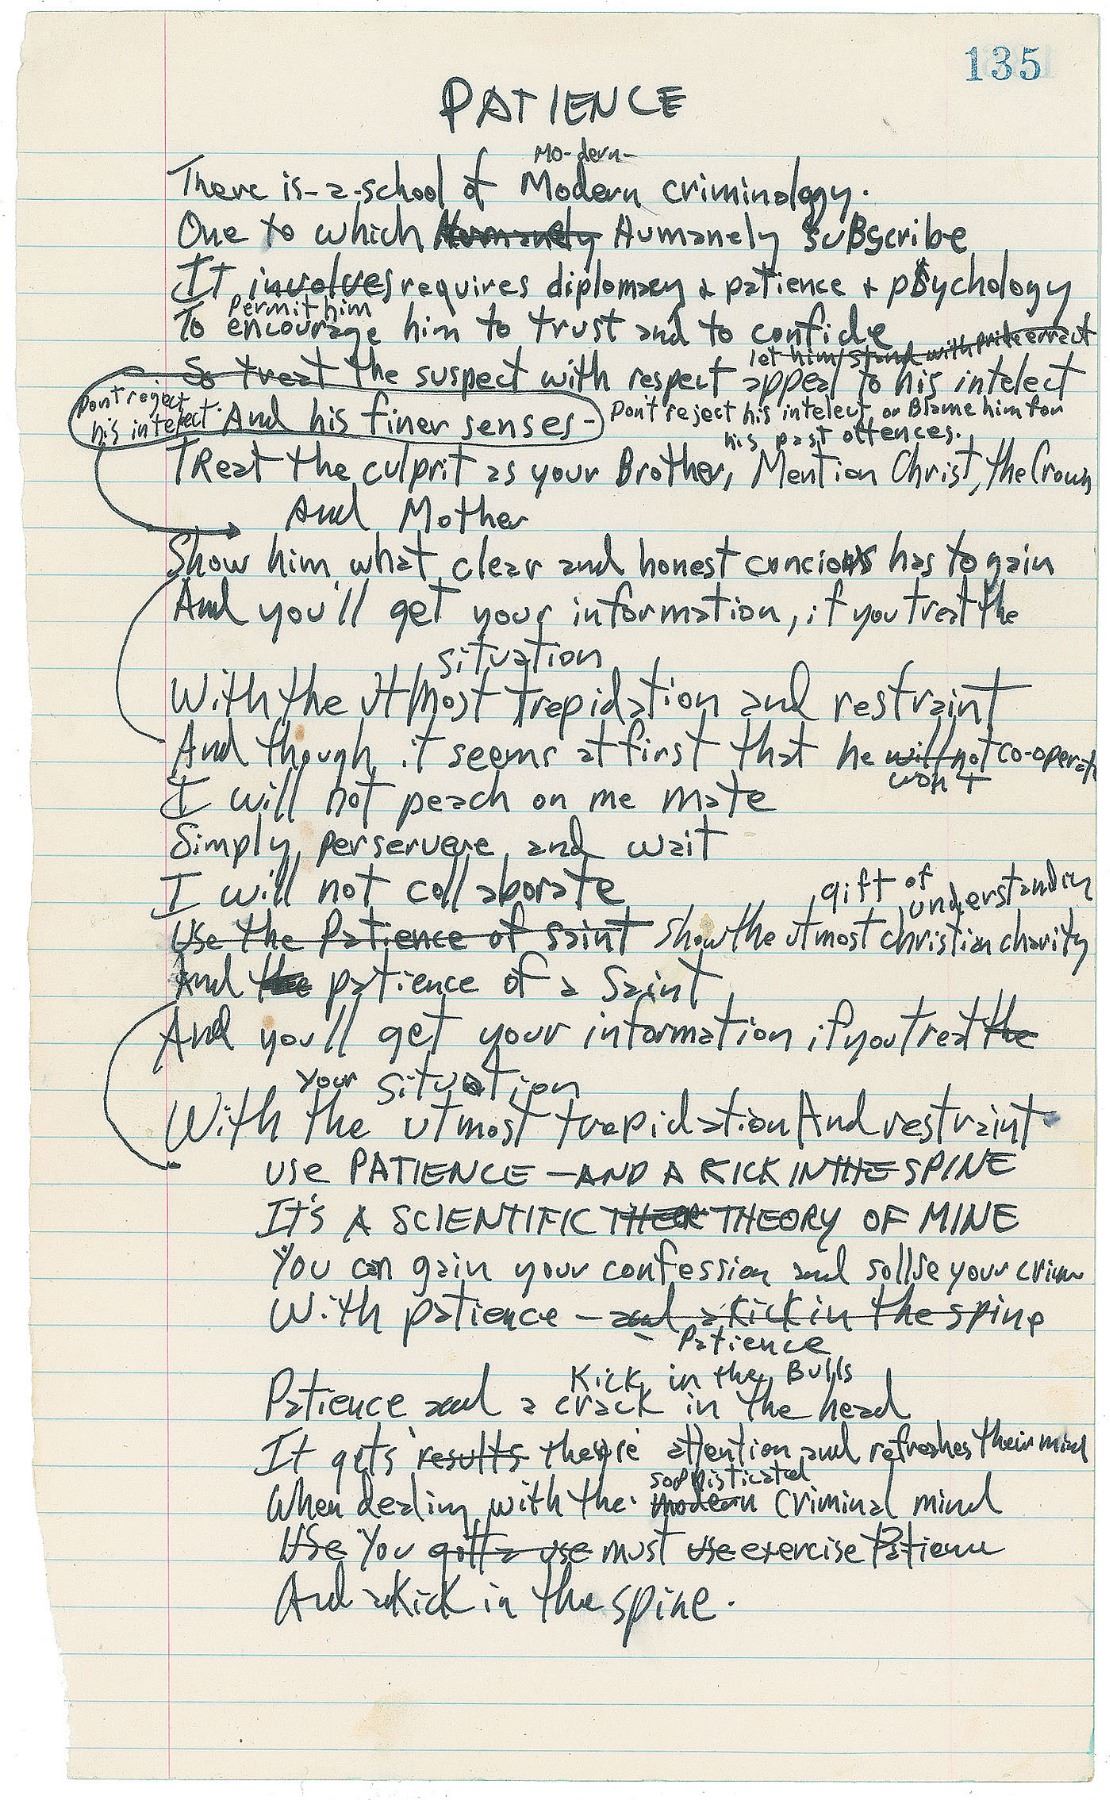 135
PATIENCE
Mo-dern-
There is-a-school of Modern criminology.
One to which Humanely Humanely suBscribe
It involves requires diplomacy & patience & pSychology
Permit him
To encourage him to trust and to confide
let him/stand with pride errect
So treat the suspect with respect appeal to his intelect
Dont reject
his intelect. And his finer senses- Don't reject his intelect, or Blame him for
his past offences.
TReat the culprit as your Brother, Mention Christ, the Crown
And Mother
Show him what clear and honest concious has to gain
And you'll get your information, if you treat the
situation
With the utmost trepidation and restraint
And though it seems at first that he will not co-operate
won't
I will not peach on me mate
Simply perservere and wait
I will not collaborate
gift of understanding
Use the Patience of saint show the utmost christian charity
And the patience of a Saint
And you'll get your information if you treat the
your situation
With the utmost trepidation And restraint
USE PATIENCE - AND A KICK IN THE SPINE
IT'S A SCIENTIFIC THEOR THEORY OF MINE
You can gain your confession and sollve your crime
With patience - and a kick in the spine
Patience
Kick in the Bulls
Patience and a crack in the head
It gets results they're attention and refreshes their mind
sophisticated
When dealing with the modern criminal mind
Use You gotta use must use exercise Patience
And a kick in the spine.